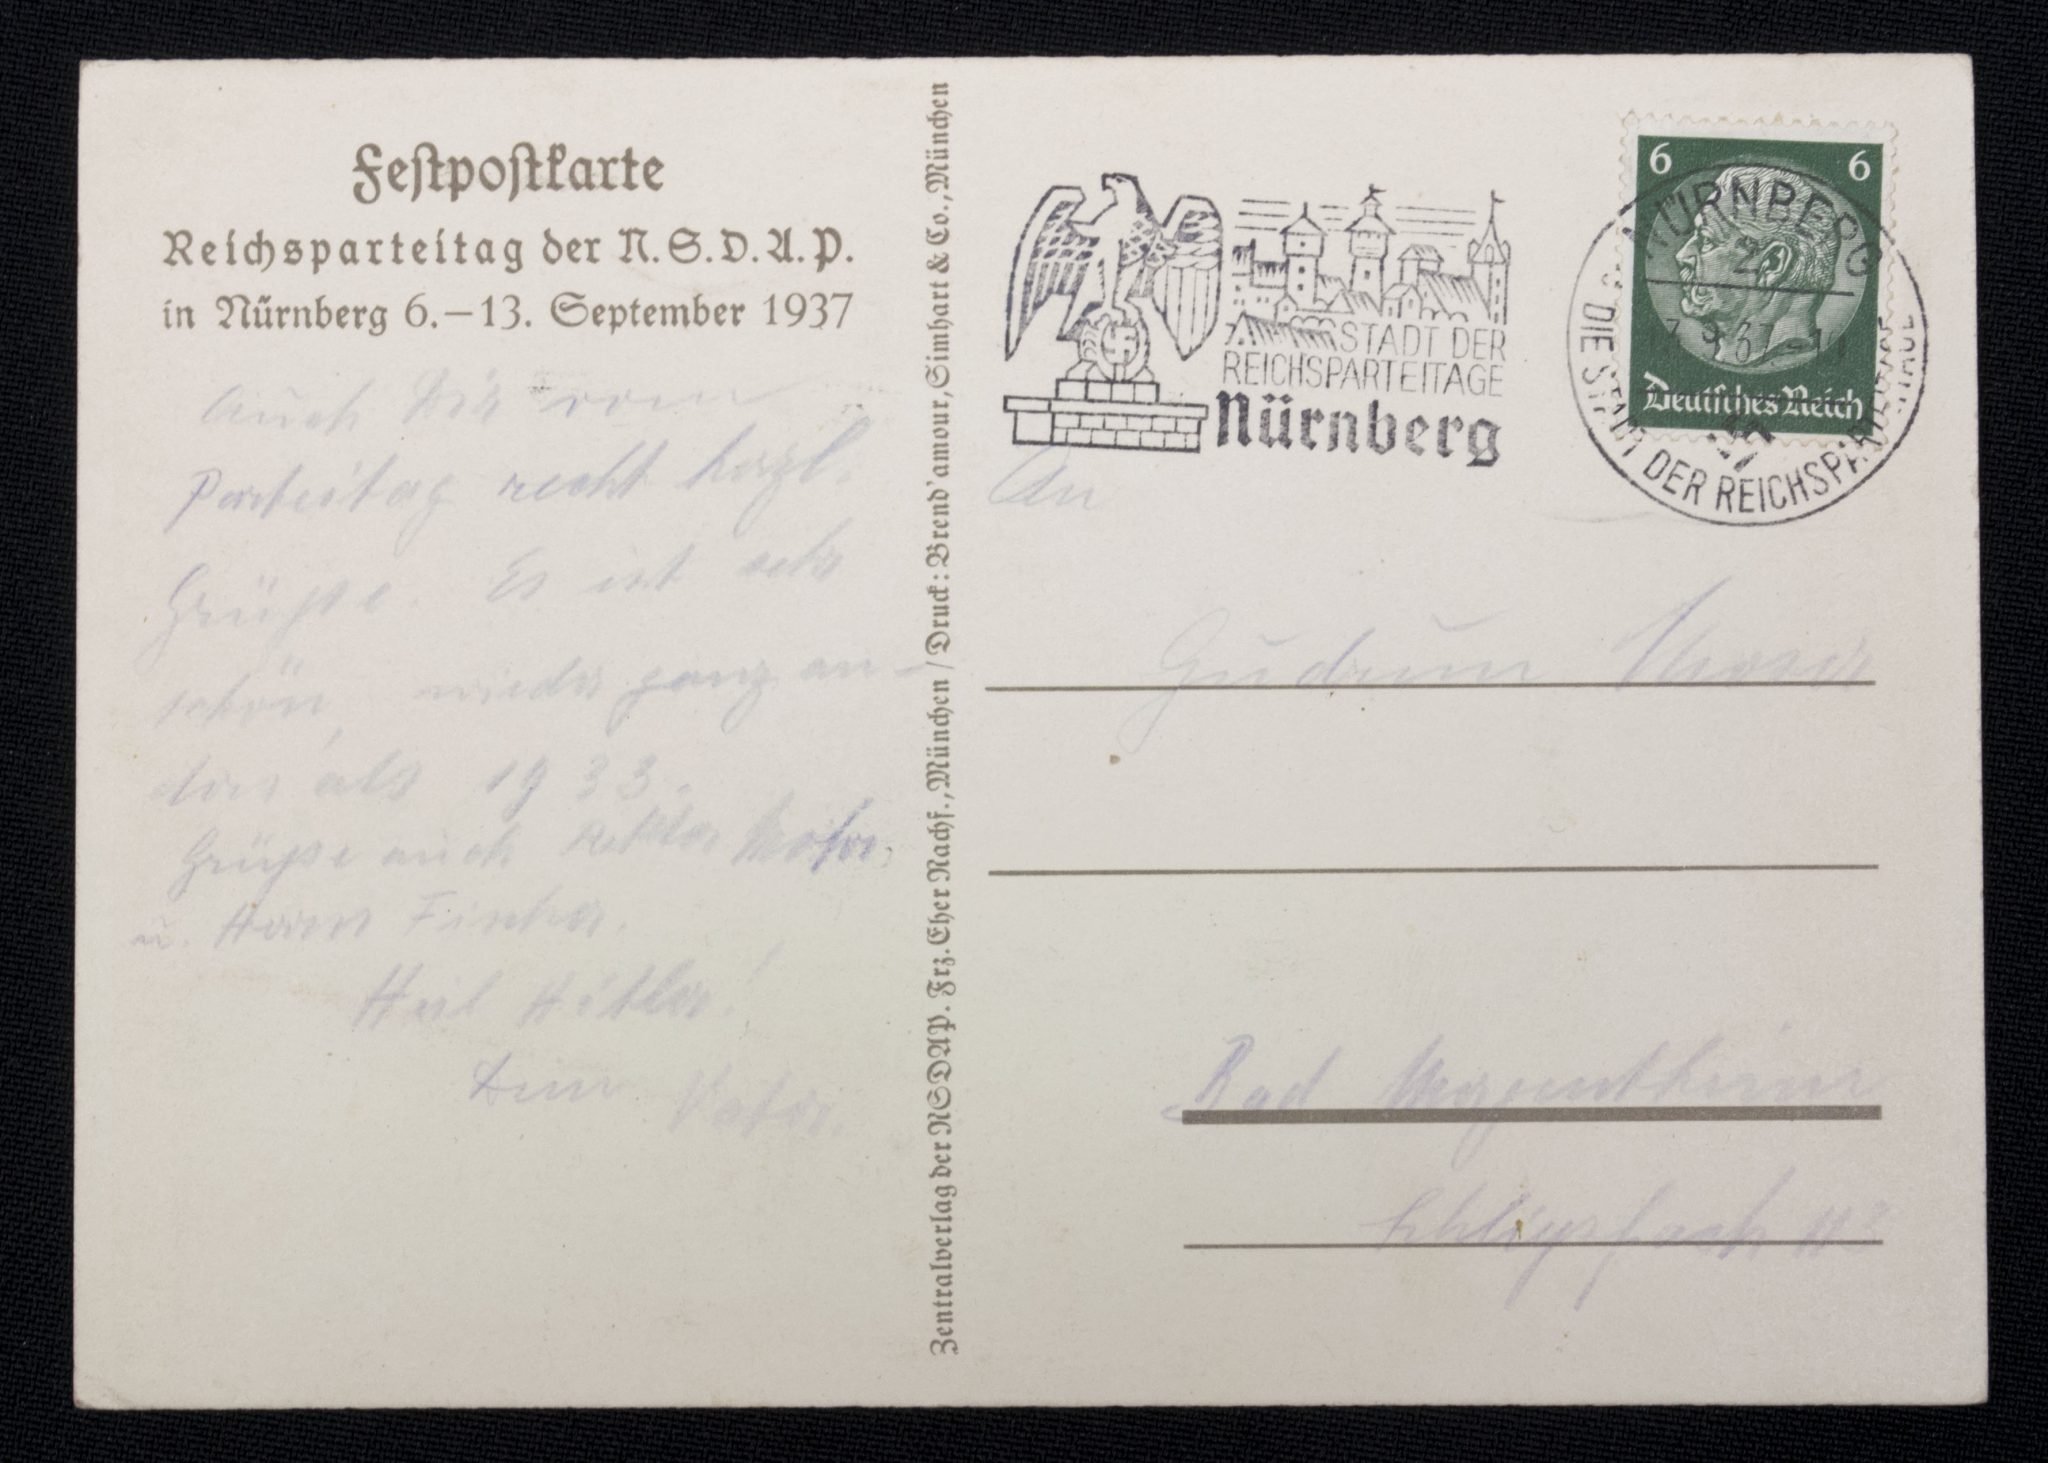 Festpostkarte
Reichsparteitag der N.S.D.A.P.
in Nürnberg 6.–13. September 1937
Auch Dir vom
Parteitag recht herzl.
Grüße. Es ist sehr
schön, wieder ganz an-
ders als 1933.
Grüße auch
u. Fischer.
Heil Hitler!
Dein Vater.
Zentralverlag der NSDAP. Frz. Eher Nachf., München / Druck: Brend'amour, Simhart & Co., München
STADT DER
REICHSPARTEITAGE
Nürnberg
6 6
Deutsches Reich
NÜRNBERG
2
7.9.37-11
DIE STADT DER REICHSPARTEITAGE
An
Gudrun
Bad Mergentheim